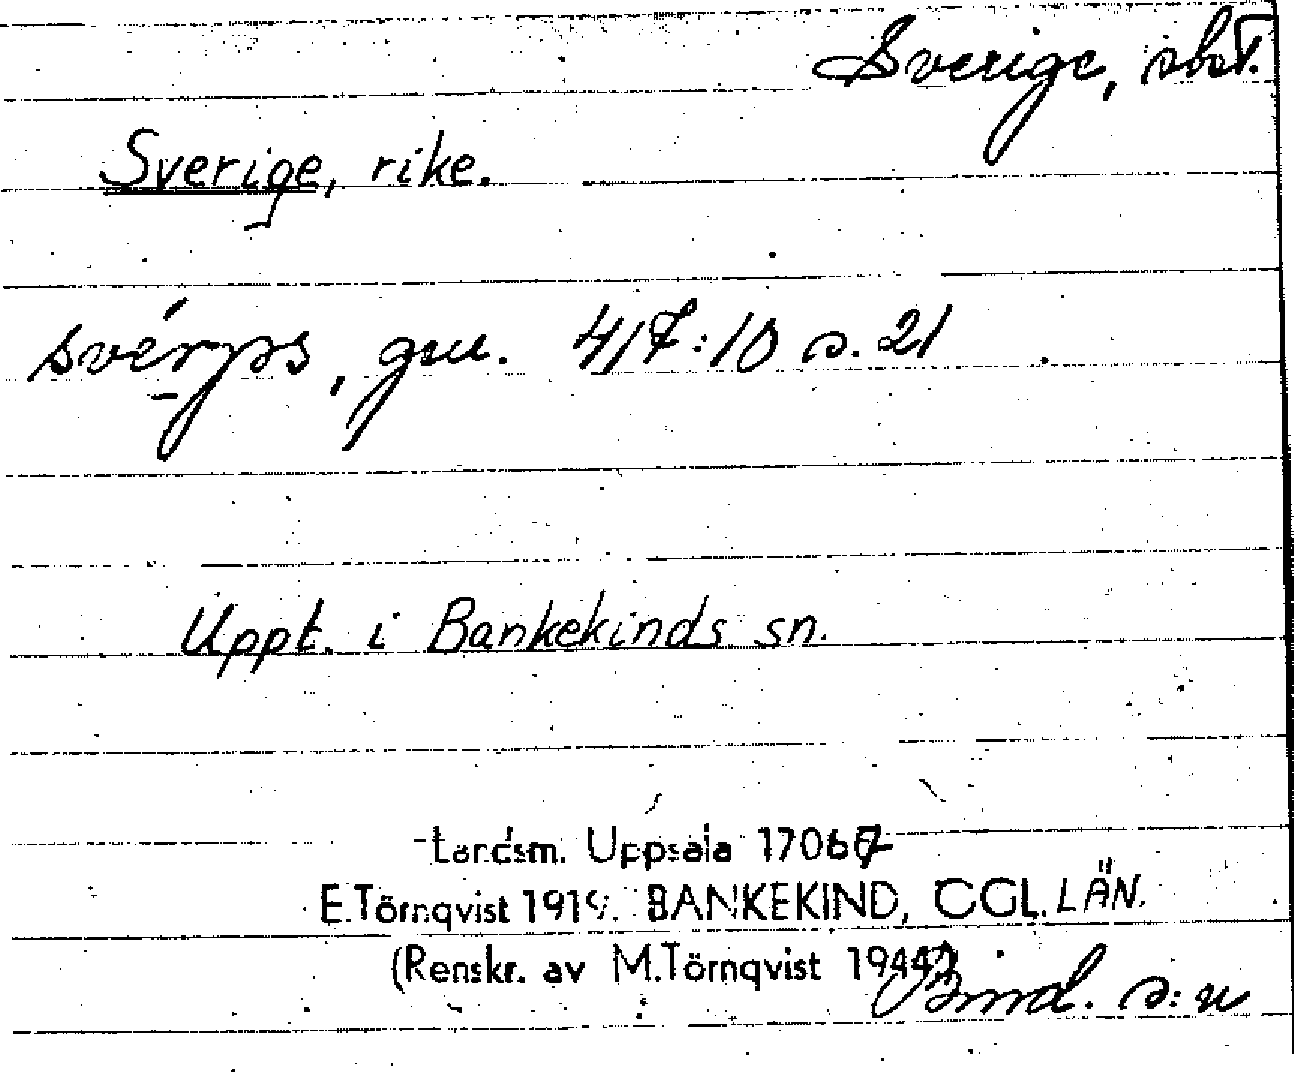 Sverige, sbst.
Sverige, rike.
gen. 417:10 s. 21
Uppt. i Bankekinds sn.
Landsm. Uppsala 17067
E.Törnqvist 1919. BANKEKIND, ÖGL. LÄN.
(Renskr. av M.Törnqvist 1944)
s:n